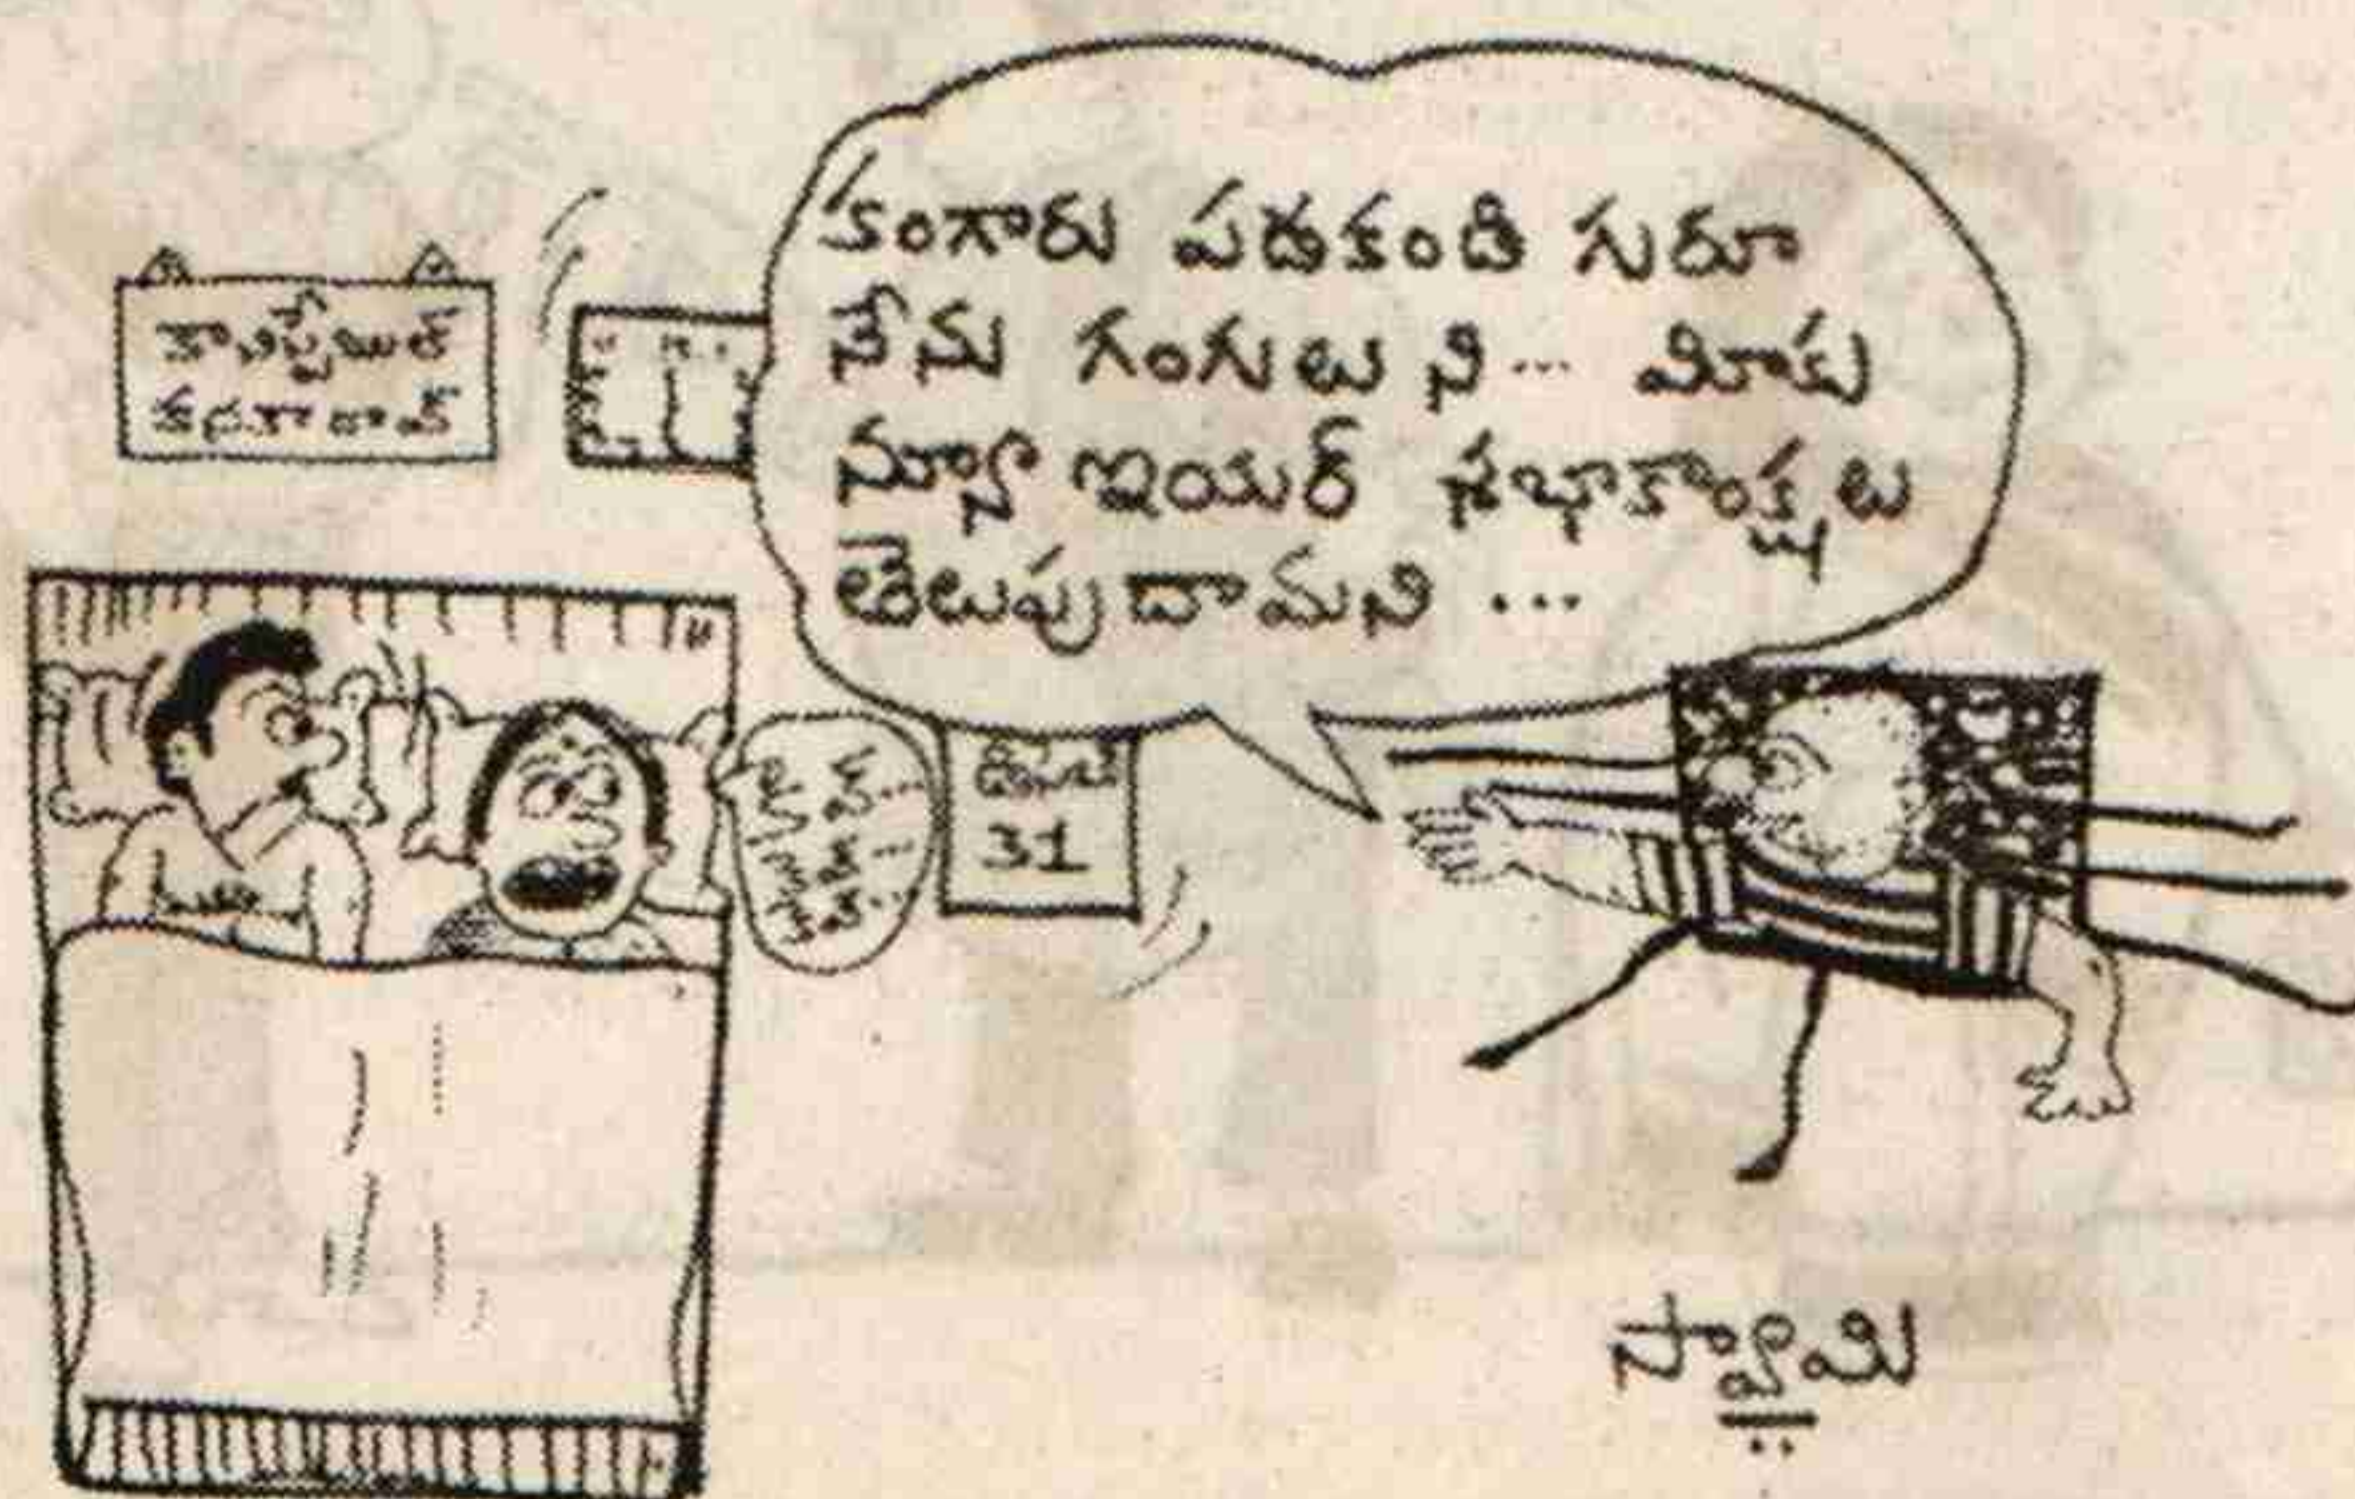 కానిస్టేబుల్
కంగారు పడకండి గురూ
నేను గంగులు ని... మీకు
న్యూ ఇయర్ శుభాకాంక్షలు
తెలుపుదామని ...
31
స్వామి